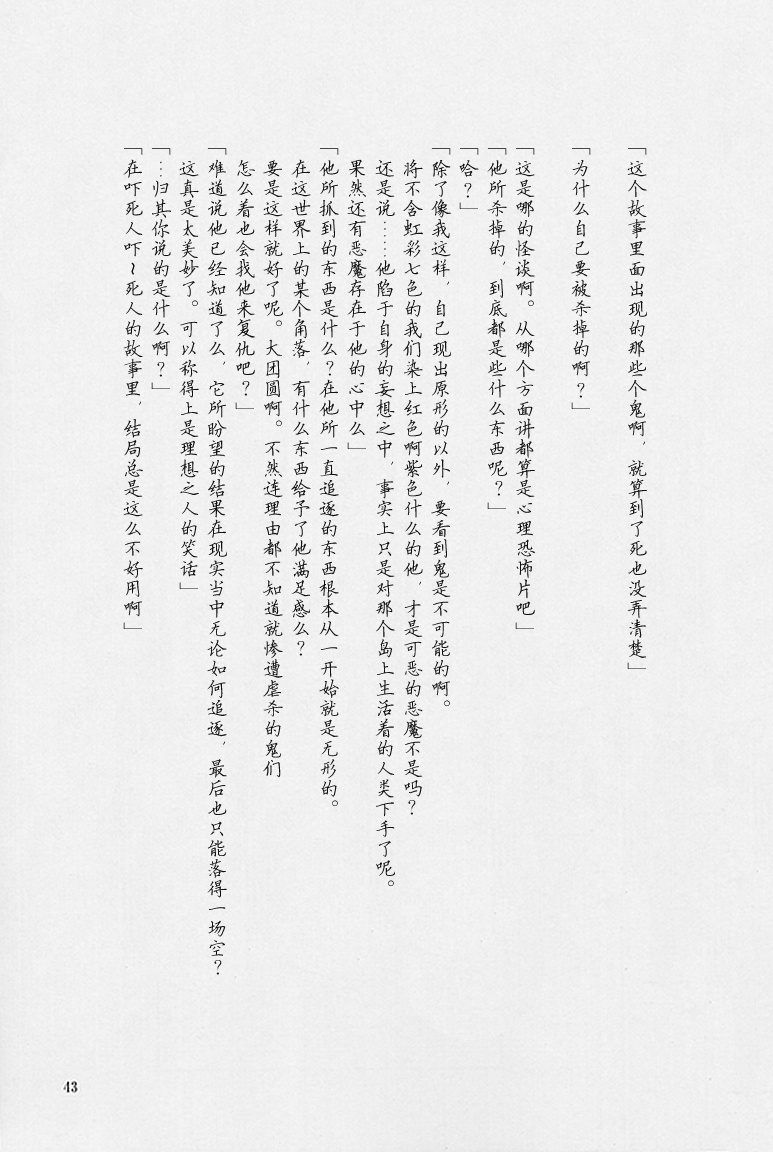 「这个故事里面出现的那些个鬼啊，就算到了死也没弄清楚」
「为什么自己要被杀掉的啊？」
「这是哪的怪谈啊。从哪个方面讲都算是心理恐怖片吧」
「他所杀掉的，到底都是些什么东西呢？」
「哈？」
「除了像我这样，自己现出原形的以外，要看到鬼是不可能的啊。
将不含虹彩七色的我们染上红色啊紫色什么的他，才是可恶的恶魔不是吗？
还是说……他陷于自身的妄想之中，事实上只是对那个岛上生活着的人类下手了呢。
果然还有恶魔存在于他的心中么」
「他所抓到的东西是什么？在他所一直追逐的东西根本从一开始就是无形的。
在这世界上的某个角落，有什么东西给予了他满足感么？
要是这样就好了呢。大团圆啊。不然连理由都不知道就惨遭虐杀的鬼们
怎么着也会找他来复仇吧？」
「难道说他已经知道了么，它所盼望的结果在现实当中无论如何追逐，最后也只能落得一场空？
这真是太美妙了。可以称得上是理想之人的笑话」
「…归其你说的是什么啊？」
「在吓死人吓～死人的故事里，结局总是这么不好用啊」
43